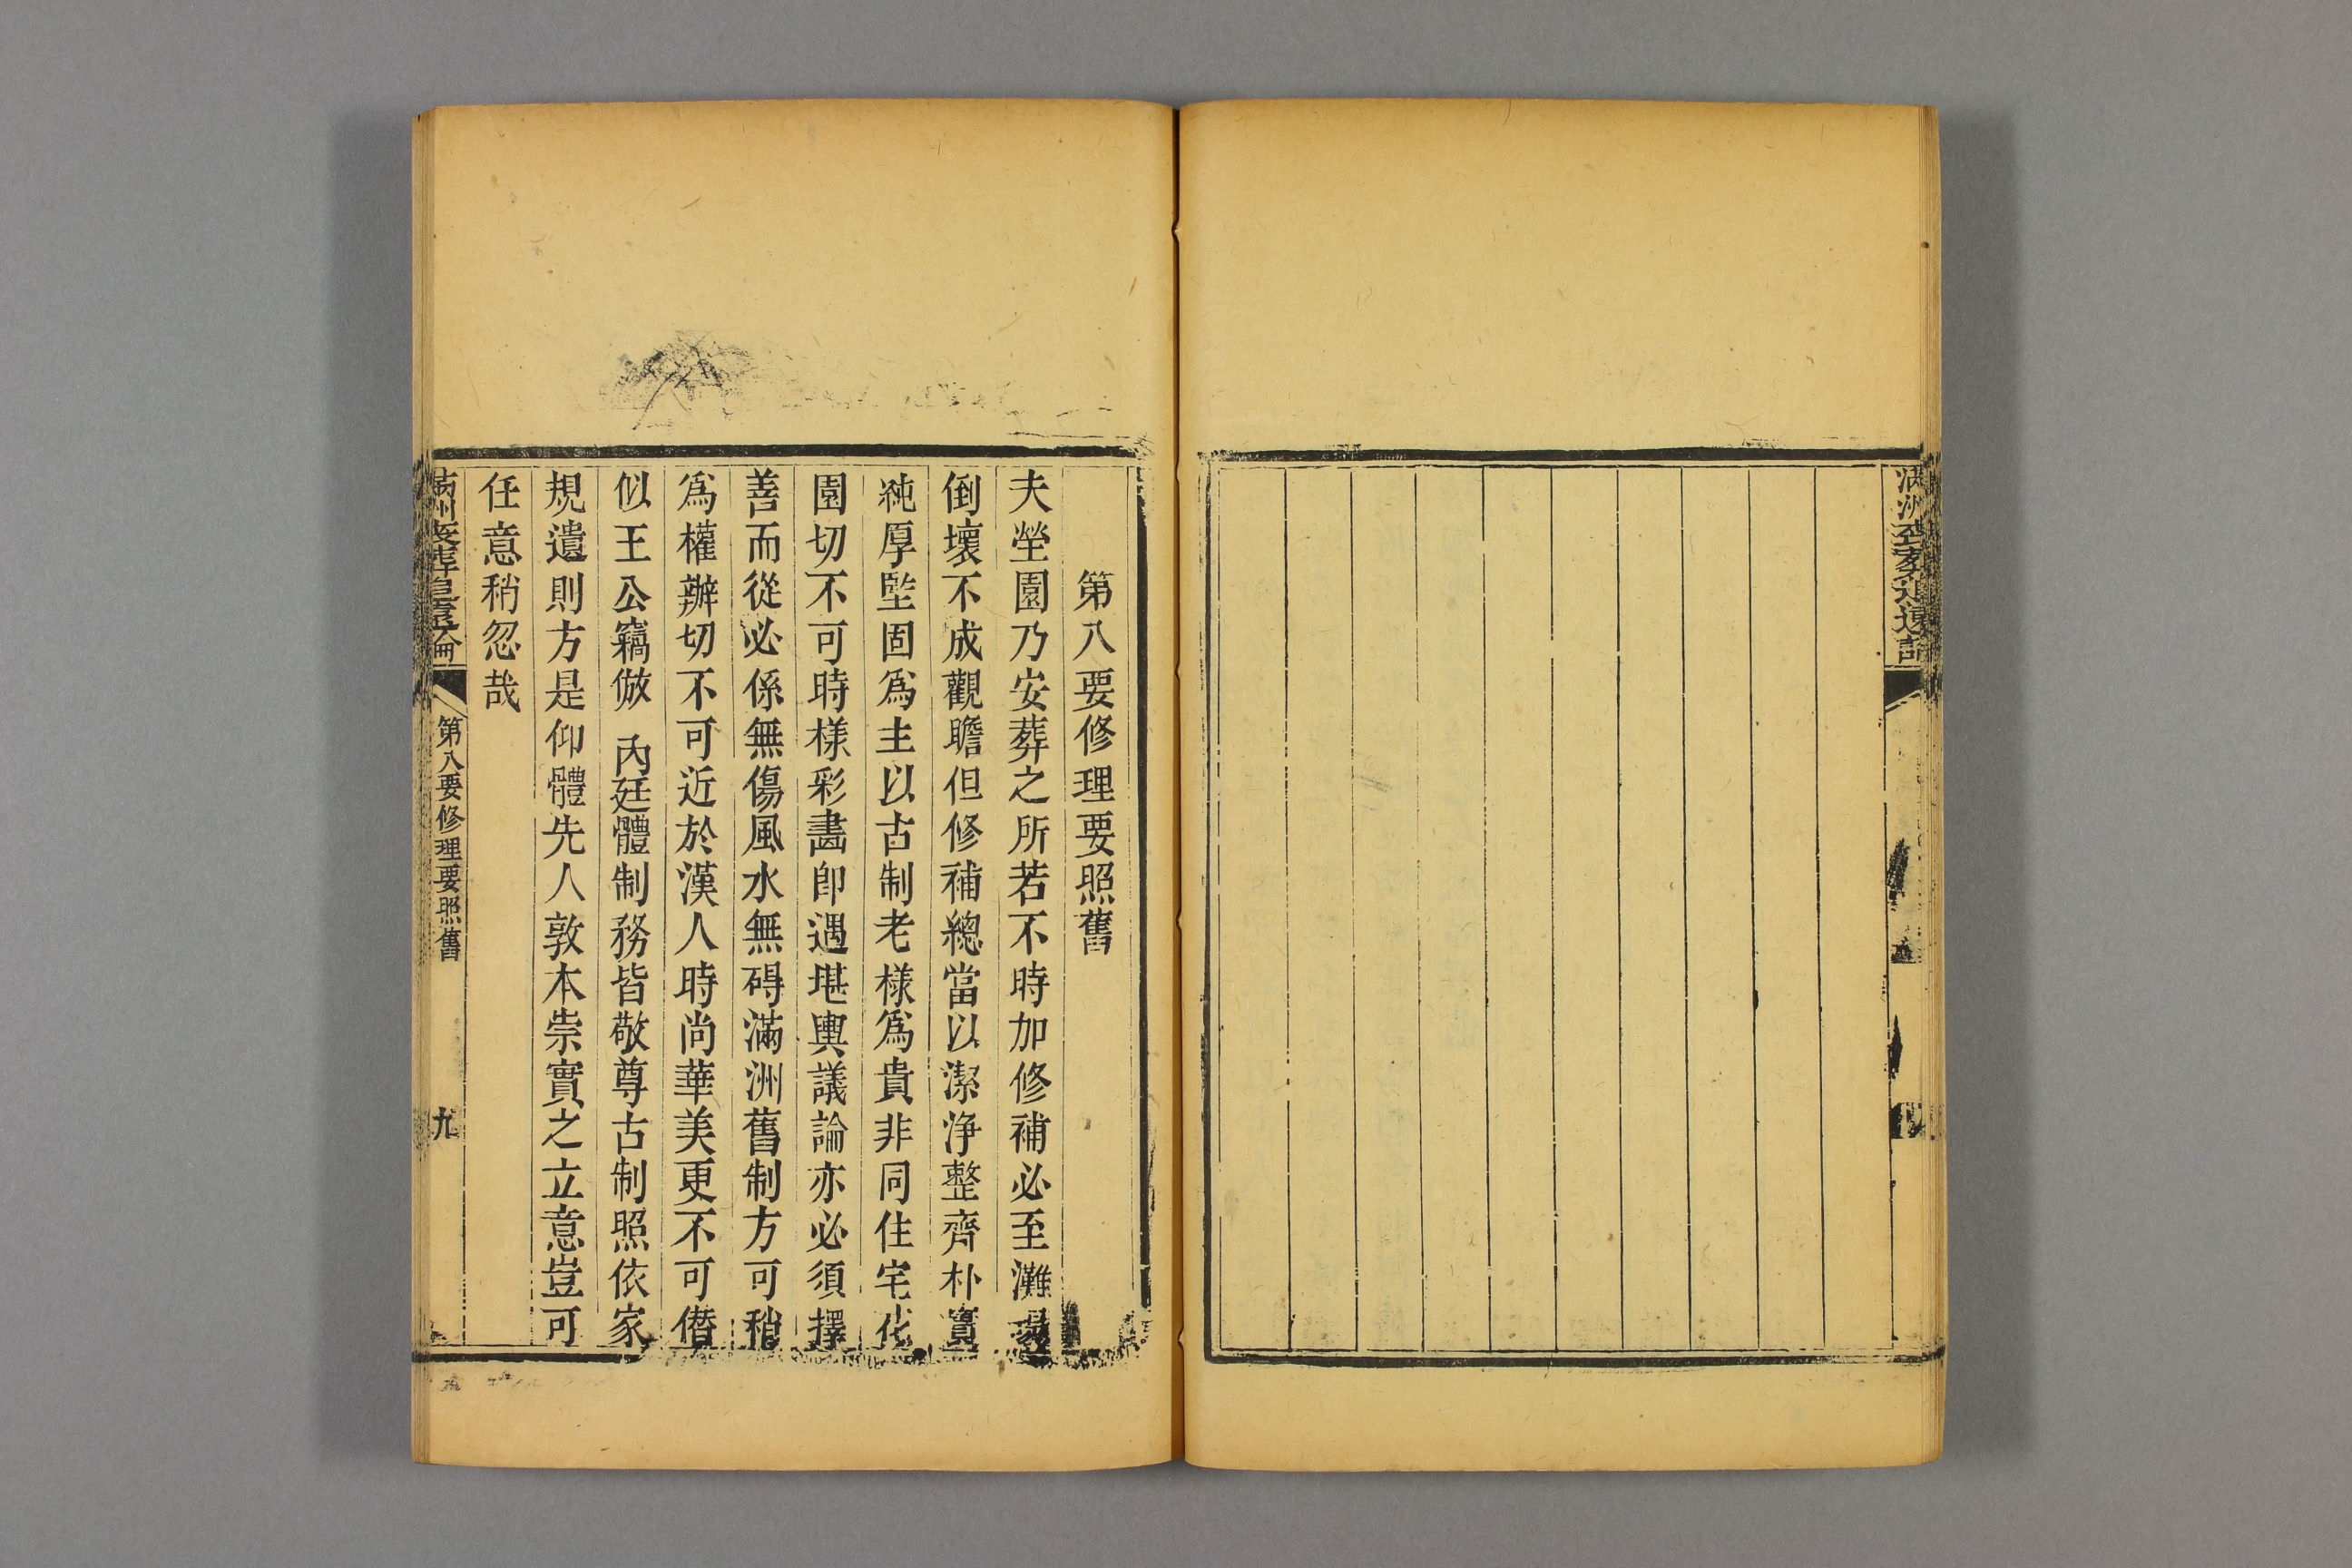 第八要修理要照舊
夫塋園乃安葬之所若不時加修補必至灘塌
倒壞不成觀瞻但修補總當以潔浄整齊朴實
純厚堅固爲主以古制老樣爲貴非同住宅花
園切不可時樣彩畵卽遇堪輿議論亦必須擇
善而從必係無傷風水無碍滿洲舊制方可稍
爲權辦切不可近於漢人時尚華美更不可僭
似王公竊倣　內廷體制務皆敬尊古制照依家
規遺則方是仰體先人敦本崇實之立意豈可
任意稍忽哉
第八要修理要照舊
九